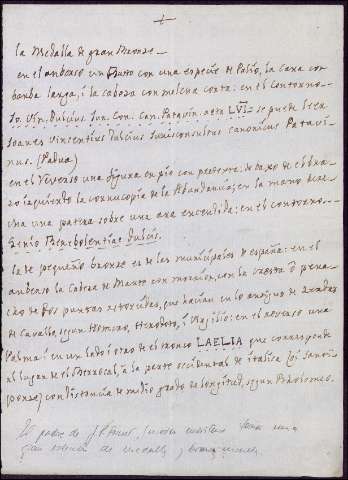 la Medalla de gran Bronze-
en el anberso un Busto con una especie de Palio, la cara con
barba larga, i la cabeza con melena corta: en el contorno-
Jo. Vin. Dulcius. Jur. Con. Can. Patavin. aeta LVI- se puede leer
Joanes Vincentius Dulcius Jurisconsultus canonicus Patavi-
nus. (Padua)
en el reverso una figura en pie con de baxo de el bra-
zo izquierdo la cornucopia de la Abundancia; en la mano dere-
una patera sobre una ara encendida: en el contorno-
Genio Benebolentiae Dulcis.
la de pequeño bronze es de las municipales de españa: en el
anberso la Cabeza de Marte con morrion, con la cresta ó pena-
cho de dos puntas retorcidas, que hacian en lo antiguo de
de Cavallo, segun Homero, Herodoto, i Virgilio: en el reverso una
Palma: i en un lado i otro de el tronco LAELIA que corresponde
al lugar de el Berrocal, à la parte occidental de italica (oi Santi
ponze) con distancia de medio grado de longitud, segun Ptolomeo.
El padre de una
gran de medallas,